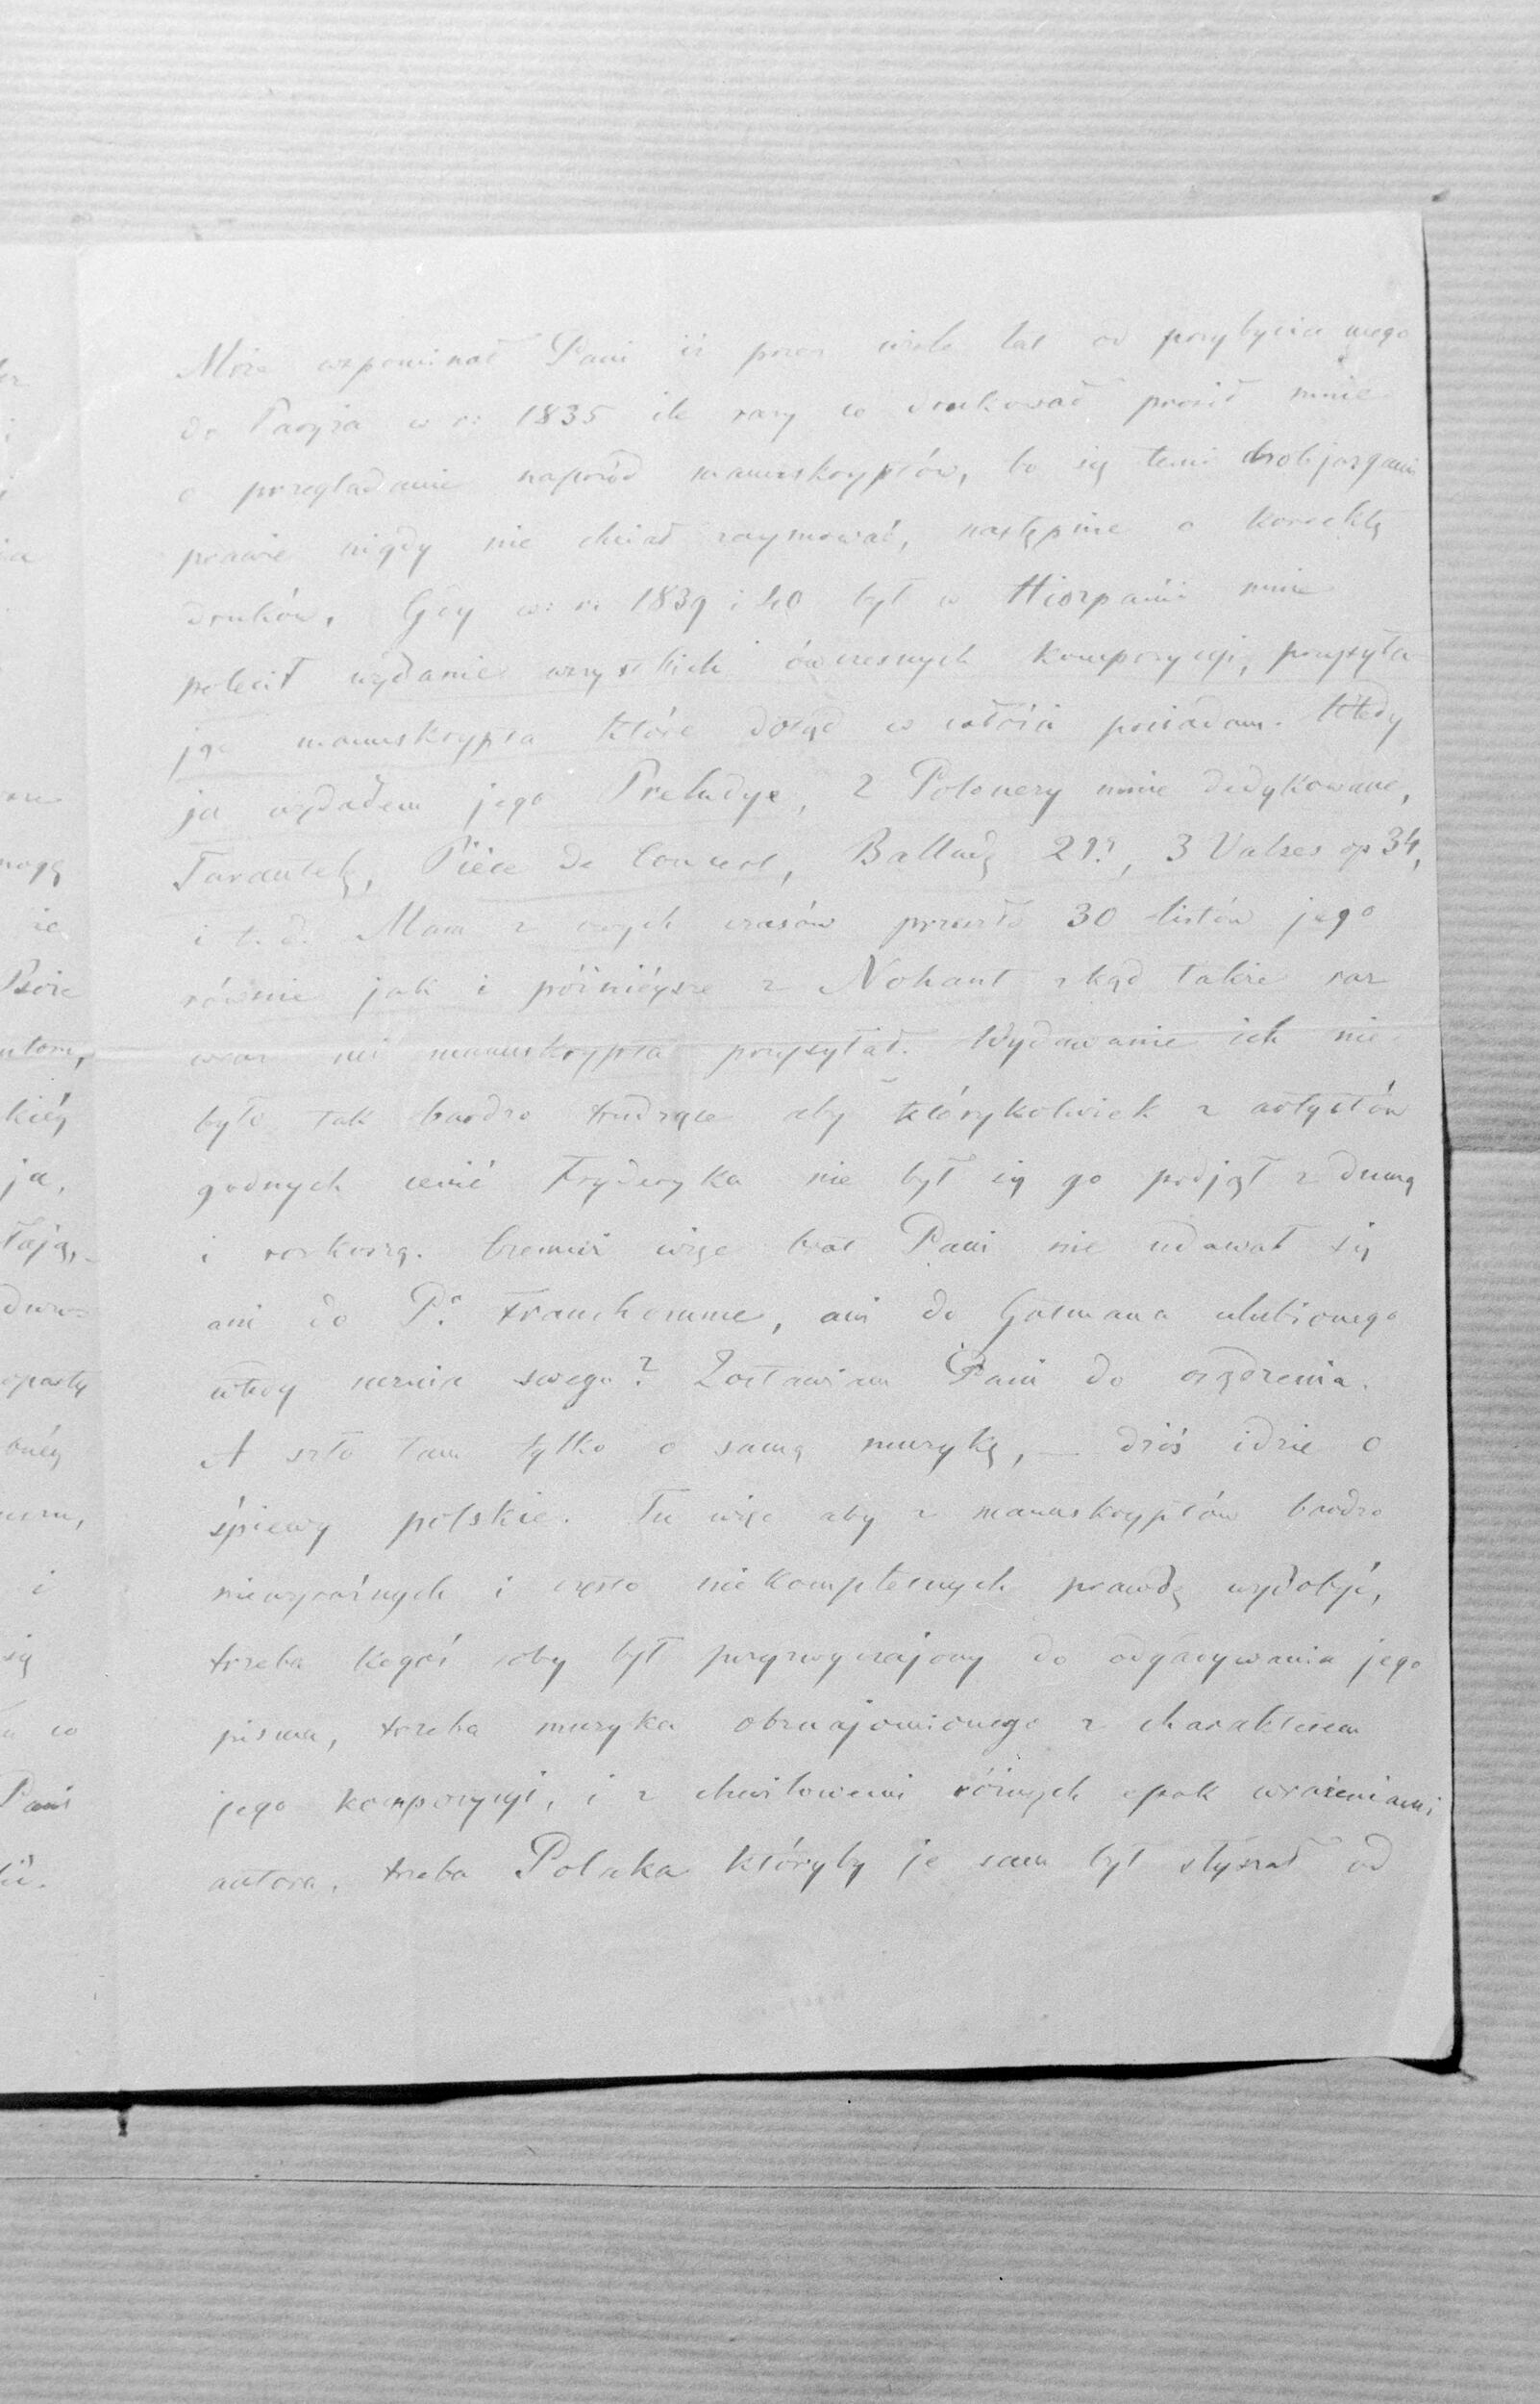 Może wspominał Pani iż przez wiele lat od przybycia mego
do Paryża w r: 1835 ile razy co drukował prosił mnie
o przeglądanie naprzód manuskryptów, bo się temi drobijazgami
prawie nigdy nie chciał zaymować, następnie o korrektę
druków. Gdy w: r: 1839 i 40 był w Hiszpanii mnie
polecił wydanie wszystkich ówczesnych kompozycyi, przysyła-
jąc manuskrypta które dotąd w całości posiadam. Wtedy
ja wydałem jego Preludye, 2 Polonezy mnie dedykowane,
Tarantelę, Pièce de Concert, Balladę 2gą, 3 Valses op 34,
i t. d. Mam z owych czasów przeszło 30 listów jego
równie jak i późniéysze z Nohant zkąd także raz
wraz mi manuskrypta przysyłał. Wydawanie ich nie
było tak bardzo trudzące aby którykolwiek z artystów
godnych cenić Fryderyka nie był się go podjął z dumą
i rozkoszą. Czemuż więc brat Pani nie udawał się
ani do Pa. Franchomme, ani do Gutmana ulubionego
wtedy ucznia swego? Zostawiam Pani do osądzenia.
A szło tam tylko o samą muzykę, — dziś idzie o
śpiewy polskie. Tu więc aby z manuskryptów bardzo
niewyraźnych i często niekompletnych prawdę wydobyć,
trzeba kogoś coby był przyzwyczajony do odgadywania jego
pisma, trzeba muzyka obznajomionego z charakterem
jego kompozycyi, i z chwilowemi różnych epok wrażeniami
autora, trzeba Polaka któryby je sam był słyszał od